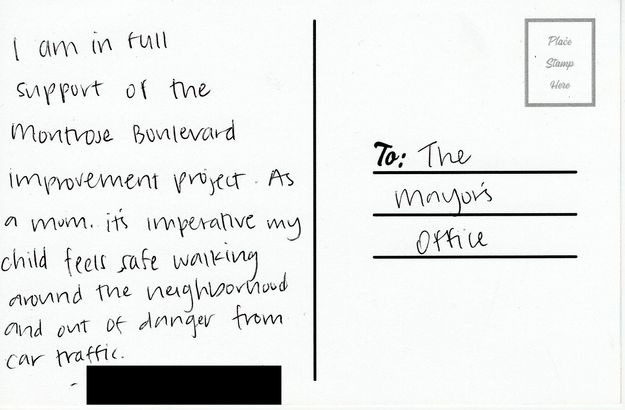 I am in full
support of the
Montrose Boulevard
improvement project. As
a mom. it's imperative my
child feels safe walking
around the neighborhood
and out of danger from
car traffic.
-
Place
Stamp
Here
To: The
Mayor's
Office